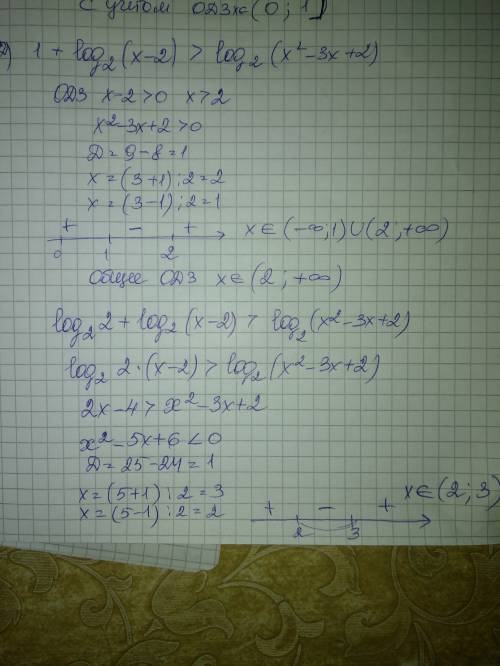 С учётом ОДЗ x∈(0; 1]
2) 1 + log₂(x-2) > log₂(x²-3x+2)
ОДЗ x-2>0 x>2
x²-3x+2>0
D=9-8=1
x=(3+1):2=2
x=(3-1):2=1
+ - +
0 1 2 x∈(-∞;1)∪(2;+∞)
Общее ОДЗ x∈(2;+∞)
log₂2+log₂(x-2)>log₂(x²-3x+2)
log₂2·(x-2)>log₂(x²-3x+2)
2x-4>x²-3x+2
x²-5x+6<0
D=25-24=1
x=(5+1):2=3
x=(5-1):2=2
+ - + x∈(2;3)
2 3